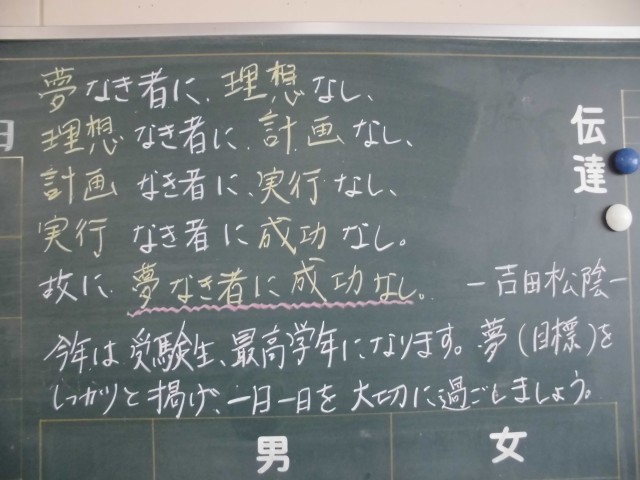 夢なき者に、理想なし、
理想なき者に、計画なし、
計画なき者に、実行なし、
実行なき者に成功なし。
故に、夢なき者に成功なし。 ー吉田松陰ー
今年は受験生、最高学年になります。夢(目標)を
しっかりと掲げ、一日一日を大切に過ごしましょう。
伝達
日
男
女